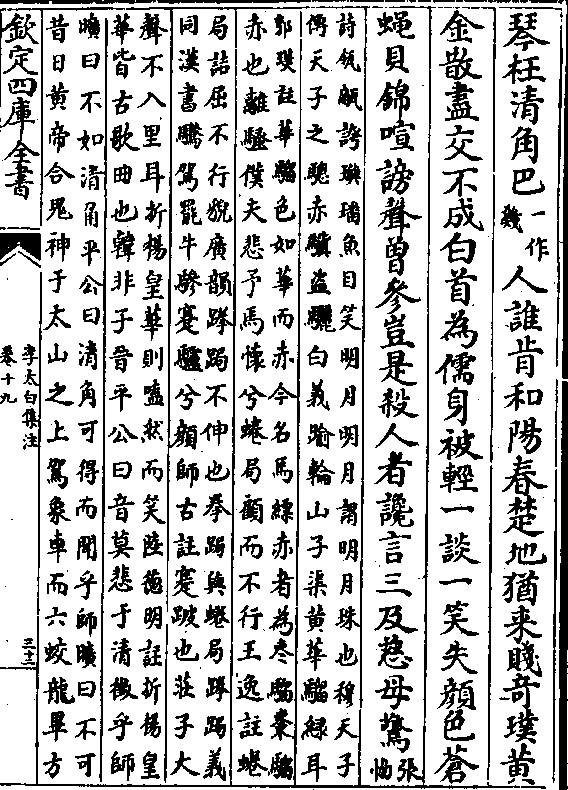 琴枉清角巴一作幾人誰肯和陽春楚地猶來賤竒璞黃
金散盡交不成白首為儒身被輕一談一笑失顔色蒼
蠅貝錦喧謗聲曽參豈是殺人者讒言三及慈母驚張協
詩瓴甋誇璵璠魚目笑明月明月謂明月珠也穆天子
傳天子之駿赤驥盗驪白義踰輪山子渠黃華騮緑耳
郭璞註華騮色如華而赤今名馬縹赤者為棗騮棗騮
赤也離騷僕夫悲予馬懷兮蜷局顧而不行王逸註蜷
局詰屈不行貌廣韻踡跼不伸也拳跼與蜷局踡跼義
同漢書騰駕罷牛驂蹇驢兮顔師古註蹇跛也莊子大
聲不入里耳折楊皇華則嗑然而笑陸徳明註折楊皇
華皆古歌曲也韓非子晉平公曰音莫悲于清徵乎師
曠曰不如清角平公曰清角可得而聞乎師曠曰不可
昔日黄帝合鬼神于太山之上駕象車而六蛟龍畢方
欽定四庫全書
李太白集注
卷十九
三十三